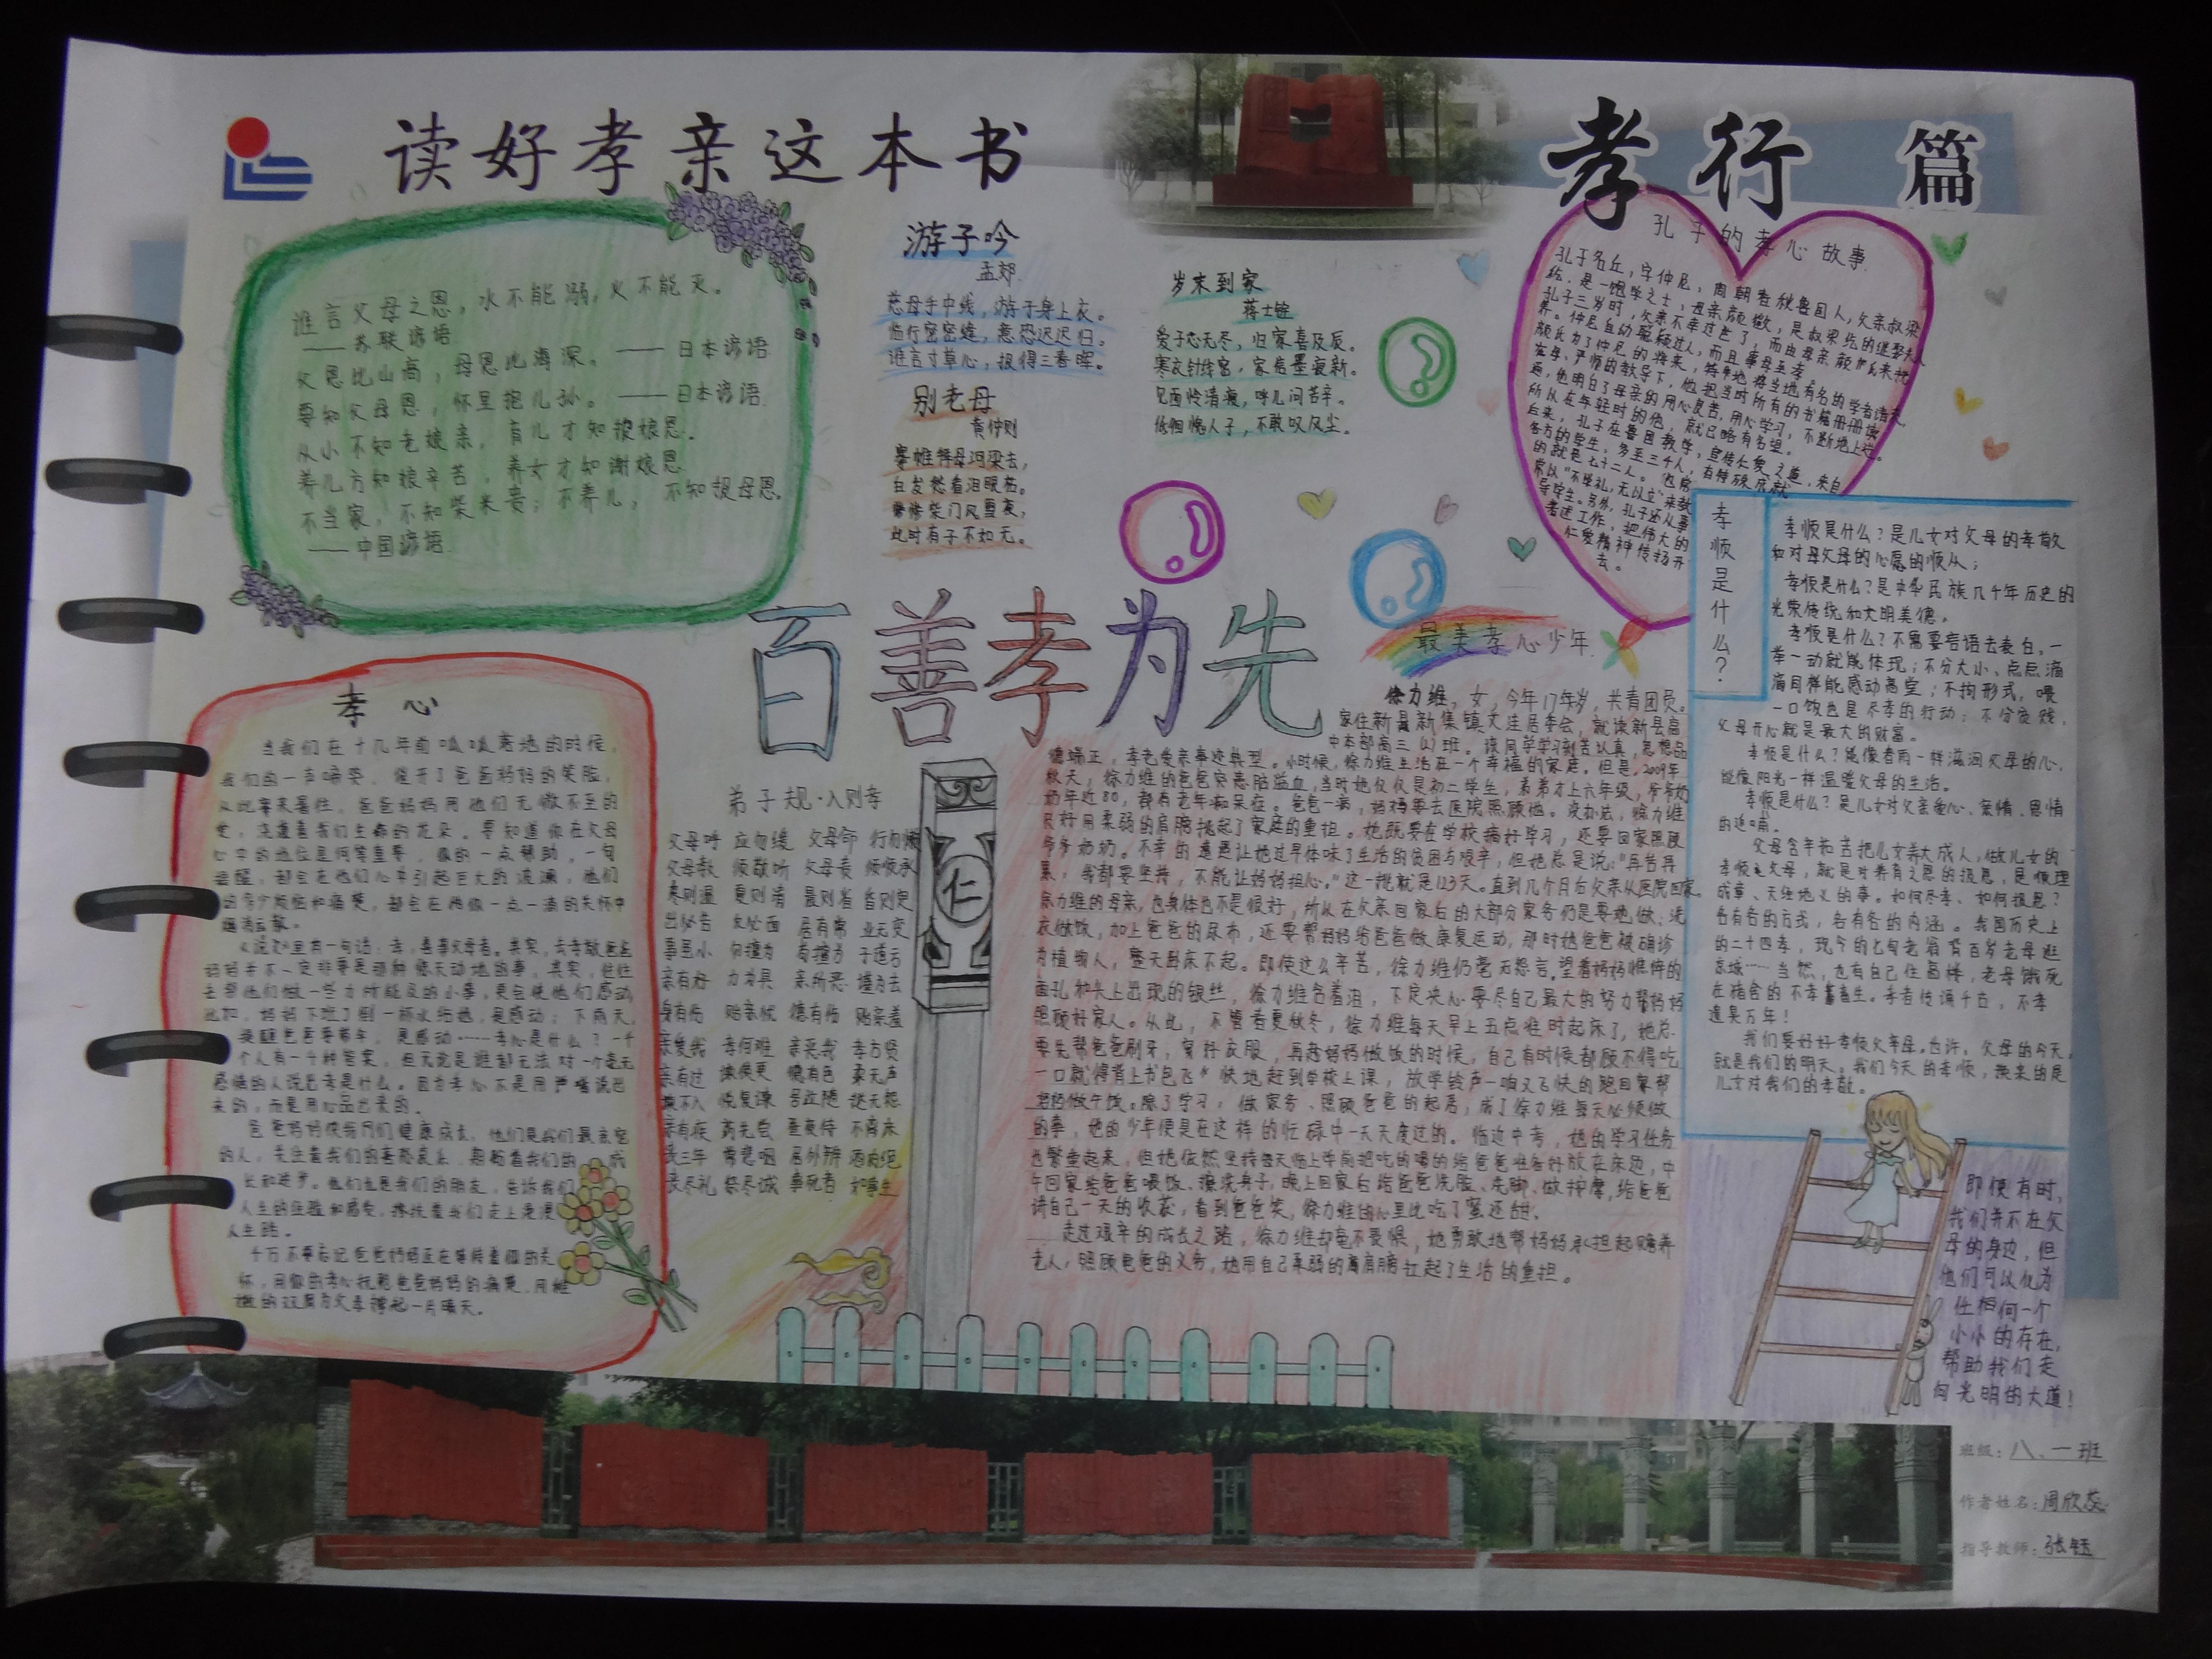 读好孝亲这本书
孝行 篇
谁言父母之恩，水不能溺，火不能灭。
——苏联谚语
父恩比山高，母恩比海深。——日本谚语
要知父母恩，怀里抱儿孙。——日本谚语
从小不知老娘亲，育儿才知报娘恩。
养儿方知娘辛苦，养女才知谢娘恩
不当家，不知柴米贵；不养儿，不知报母恩。
——中国谚语
游子吟
孟郊
慈母手中线，游子身上衣。
临行密密缝，意恐迟迟归。
谁言寸草心，报得三春晖。
别老母
黄仲则
搴帷拜母河梁去，
白发愁看泪眼枯。
惨惨柴门风雪夜，
此时有子不如无。
岁末到家
蒋士铨
爱子心无尽，归家喜及辰。
寒衣针线密，家信墨痕新。
见面怜清瘦，呼儿问苦辛。
低徊愧人子，不敢叹风尘。
孔子的孝心故事
孔子名丘，字仲尼，周朝春秋鲁国人，父亲叔梁
纥，是一饱学之士，母亲颜徵，是叔梁纥的继娶夫人
孔子三岁时，父亲不幸过世了，而由母亲颜氏来抚
养。仲尼自幼聪颖过人，而且事母至孝
后来，孔子在鲁国教学，宣传仁爱之道，来自
各方的学生，多至三千人，有特殊成就
的就是七十二人。他常
常以“不学礼，无以立”来教
导学生。另外，孔子还从事
著述工作，把伟大的
仁爱精神传扬开
去。
孝顺是什么？
孝顺是什么？是儿女对父母的孝敬
和对母父母的心愿的顺从；
孝顺是什么？是中华民族几千年历史的
光荣传统和文明美德。
孝顺是什么？不需要言语去表白，一
举一动就能体现；不分大小、点点滴
滴同样能感动高堂；不拘形式，喂
一口饭也是尽孝的行动；不分贫贱，
父母开心就是最大的财富。
孝顺是什么？能像春雨一样滋润父母的心，
能像阳光一样温暖父母的生活。
孝顺是什么？是儿女对父亲爱心、亲情、恩情
的
父母含辛茹苦把儿女养大成人，做儿女的
孝顺父母，就是对养育之恩的报恩，是顺理
成章、天经地义的事。如何尽孝、如何报恩？
各有各的方式，各有各的内涵。我国历史上
的二十四孝，现今的七旬老翁背百岁老母逛
京城……当然，也有自己住高楼，老母饿死
在猪舍的不孝畜生。孝者传诵千古，不孝
遗臭万年！
我们要好好孝顺父母，也许，父母的今天，
就是我们的明天。我们今天的孝顺，换来的是
儿女对我们的孝敬。
百善孝为先
最美孝心少年
徐力维，女，今年17年岁，共青团员。
家住新县新集镇文洼居委会，就读新县高
中本部高三（2）班。该同学学习刻苦认真，思想品
德端正，孝老爱亲事迹典型。小时候，徐力维生活在一个幸福的家庭。但是，2009年
秋天，徐力维的爸爸突患脑溢血，当时她仅仅是初二学生，弟弟才上六年级，爷爷奶
奶年近80，都有老年痴呆症。爸爸一病，妈妈要去医院照顾他。没办法，徐力维
只好用柔弱的肩膀挑起了家庭的重担。她既要在学校搞好学习，还要回家照顾
爷爷奶奶。不幸的遭遇让她过早体味了生活的贫困与艰辛，但她总是说：“再苦再
累，我都要坚持，不能让妈妈担心。”这一挑就是123天。直到几个月后父亲从医院回家。
徐力维的母亲，也身体也不是很好，所以在父亲回家后的大部分家务仍是要她做、洗
衣做饭，加上爸爸的尿布，还要帮妈妈给爸爸做康复运动，那时爸爸被确诊
为植物人，整天卧床不起。即使这么辛苦，徐力维仍毫无怨言。望着妈妈憔悴的
面孔和头上出现的银丝，徐力维含着泪，下定决心要尽自己最大的努力帮妈妈
照顾好家人。从此，不管春夏秋冬，徐力维每天早上五点准时起床了，她总
要先帮爸爸刷牙，穿好衣服，再趁妈妈做饭的时候，自己有时候都顾不得吃
一口就得背上书包飞快地赶到学校上课，放学铃声一响又飞快的跑回家帮
妈妈做午饭。除了学习，做家务、照顾爸爸的起居，成了徐力维每天必须做
的事，她的少年便是在这样的忙碌中一天天度过的。临近中考，她的学习任务
也繁重起来，但她依然坚持每天临上学前把吃的喝的给爸爸准备好放在床边，中
午回家给爸爸喂饭、擦洗身子，晚上回家后给爸爸洗脸、洗脚、做按摩，给爸爸
讲自己一天的收获，看到爸爸笑，徐力维的心里比吃了蜜还甜。
走过艰辛的成长之路，徐力维却毫不畏惧，她勇敢地帮妈妈承担起赡养
老人，照顾爸爸的义务，她用自己柔弱的肩膀扛起了生活的重担。
孝心
当我们在十几年前呱呱落地的时候，
我们的一声啼哭，催开了爸爸妈妈的笑脸，
从此寒来暑往，爸爸妈妈用他们无微不至的
爱，浇灌着我们生命的花朵。要知道你在父母
心中的地位是何等重要，你的一点帮助，一句
提醒，都会在他们心中引起巨大的波澜，他们
的多少烦恼和痛楚，都会在你一点一滴的关怀中
烟消云散。
去帮他们做一些力所能及的小事，更会使他们感动
比如，妈妈下班了倒一杯水给她，是感动；下雨天，
提醒爸爸要带伞，是感动……孝心是什么？一千
个人有一千种答案，但无论是谁都无法对一个毫无
感情的人说出孝是什么。因为孝心不是用声嘴说出
来的，而是用心品出来的。
爸爸妈妈使我们健康成长，他们是我们最亲密
的人，关注着我们的喜怒哀乐，期盼着我们的成
长和进步。他们也是我们的朋友，告诉我们
人生的经验和感受，搀扶着我们走上漫漫
人生路。
千万不要忘记爸爸妈妈正在等待着你的关
怀，用你的孝心抚慰爸爸妈妈的痛楚，用稚
嫩的双肩为父母撑起一片晴天。
弟子规·入则孝
父母呼 应勿缓 父母命 行勿懒
父母教 须敬听 父母责 须顺承
冬则温 夏则凊 晨则省 昏则定
出必告 反必面 居有常 业无变
事虽小 勿擅为 苟擅为 子道亏
亲有好 力为具 亲所恶 谨为去
身有伤 贻亲忧 德有伤 贻亲羞
亲爱我 孝何难 亲恶我 孝方贤
亲有过 谏使更 怡吾色 柔吾声
谏不入 悦复谏 号泣随 挞无怨
亲有疾 药先尝 昼夜侍 不离床
丧三年 常悲咽 居处辨 酒肉绝
丧尽礼 祭尽诚 事死者 如事生
仁
即使有时，
我们并不在父
母的身边，但
他们可以化为
任何一个
小小的存在，
帮助我们走
向光明的大道！
班级：八、一班
作者姓名：周欣蕊
指导教师：张钰